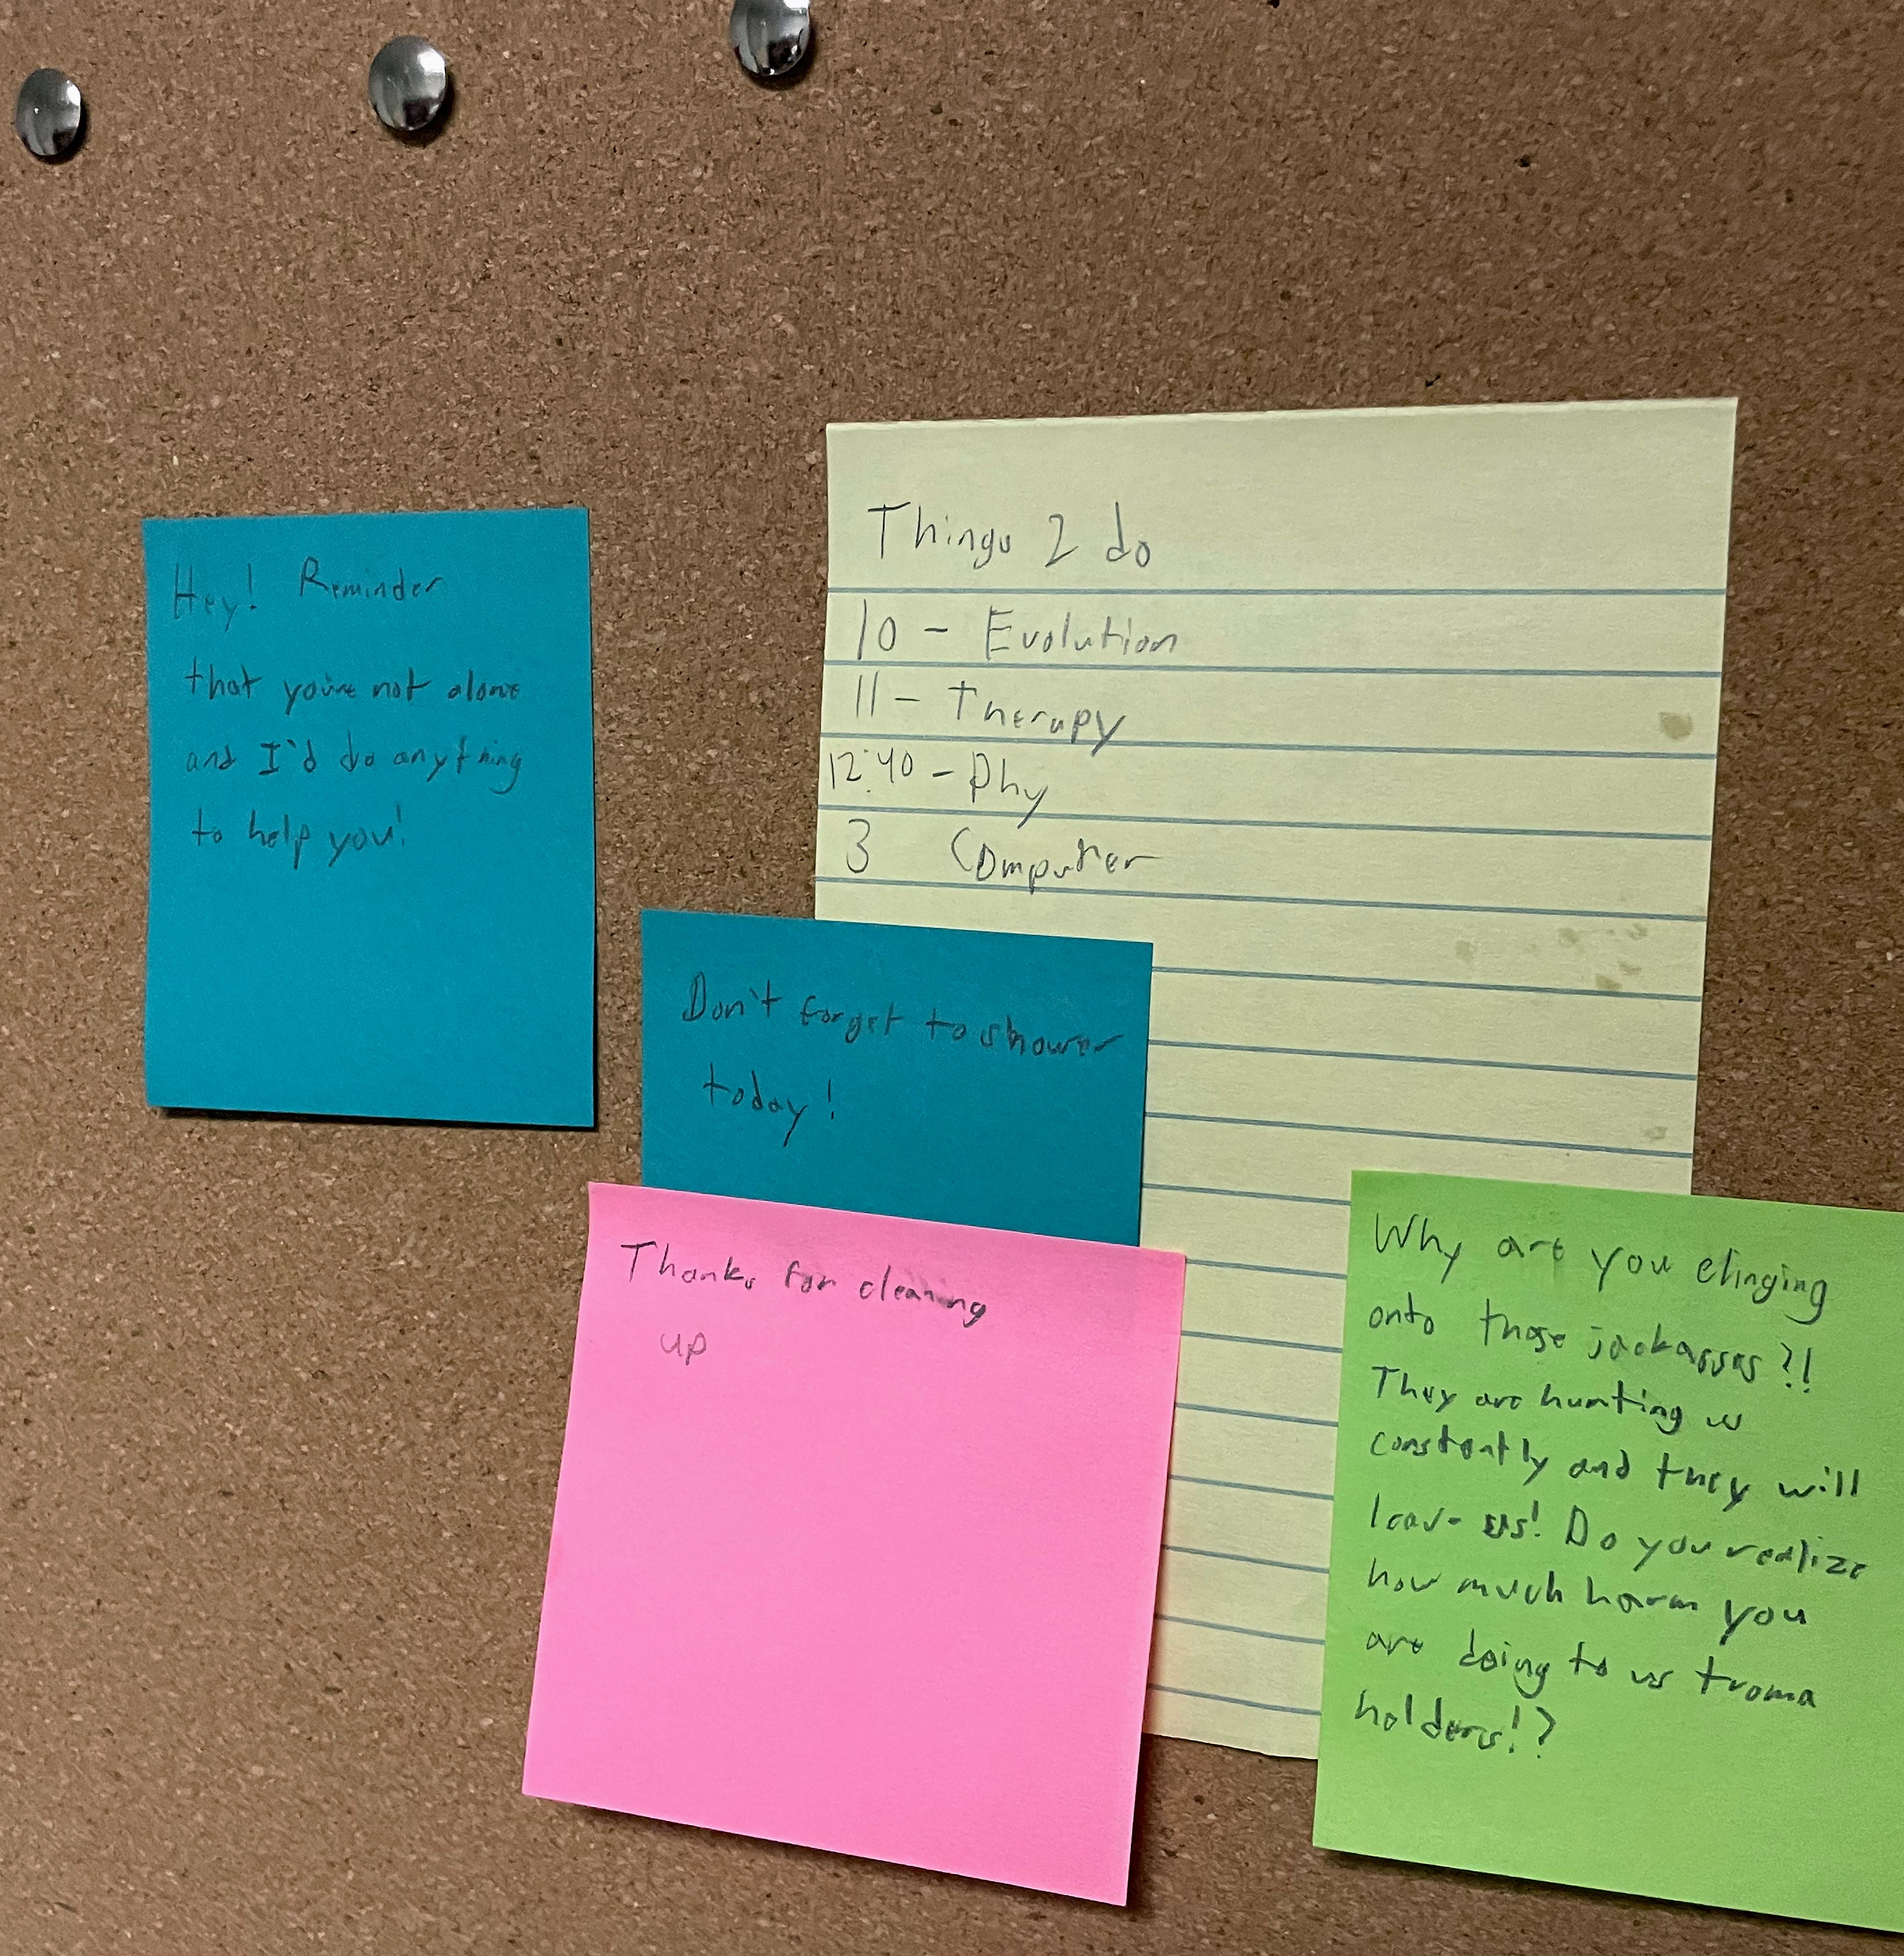 Hey! Reminder
that you're not alone
and I'd do anything
to help you!
Things 2 do
10 - Evolution
11 - Therapy
12:40 - Phy
3 Computer
Don't forget to shower
today!
Thanks for cleaning
up
Why are you clinging
onto those jackasses?!
They are hurting us
constantly and they will
leave us! Do you realize
how much harm you
are doing to us troma
holders!?